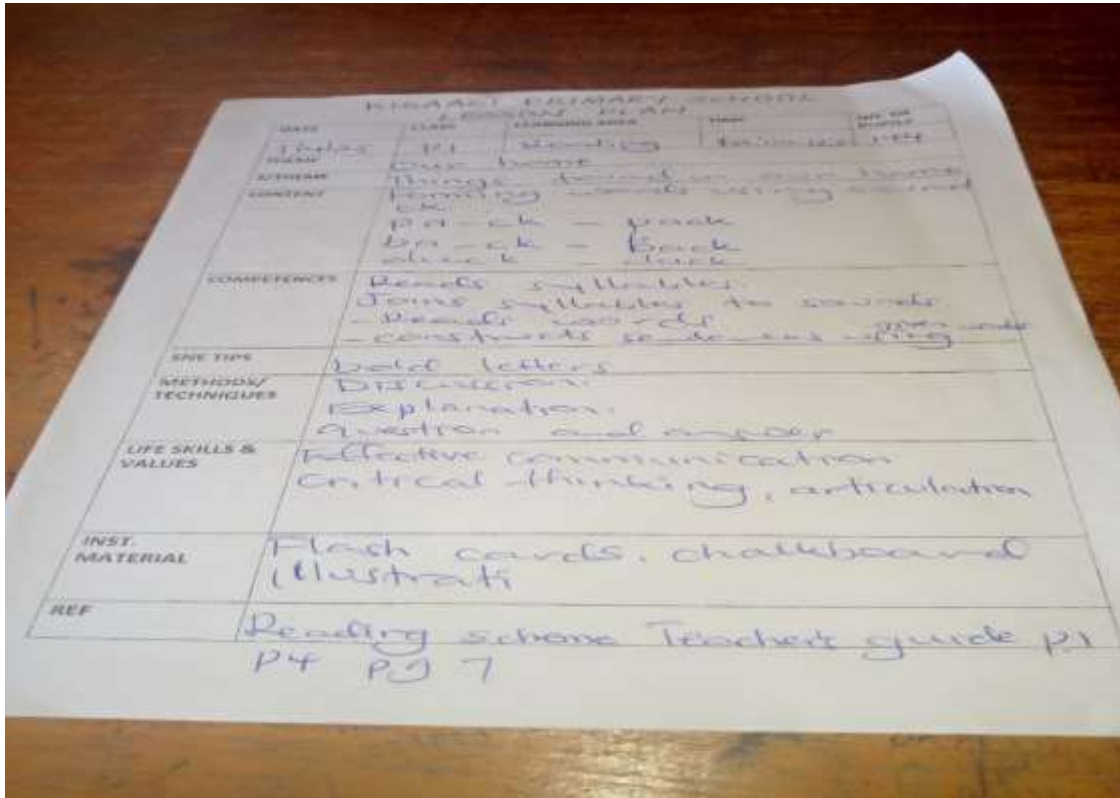 PRIMARY SCHOOL
LESSON PLAN
DATE CLASS LEARNING AREA TIME NO. OF PUPILS
P1 Reading
THEME Our home
S/THEME Things found in our home
CONTENT Forming words using sound
ck
pa - ck - pack
ba - ck - Back
COMPETENCES Reads syllables.
Joins syllables to sounds
- Reads words
- constructs sentences using given words
SNE TIPS bold letters
METHODS/ TECHNIQUES Discussion.
Explanation.
Question and answer
LIFE SKILLS & VALUES Effective communication
Critical thinking, articulation
INST. MATERIAL Flash cards, chalkboard
illustrati
REF Reading scheme Teacher's guide P.1
P4 pg 7